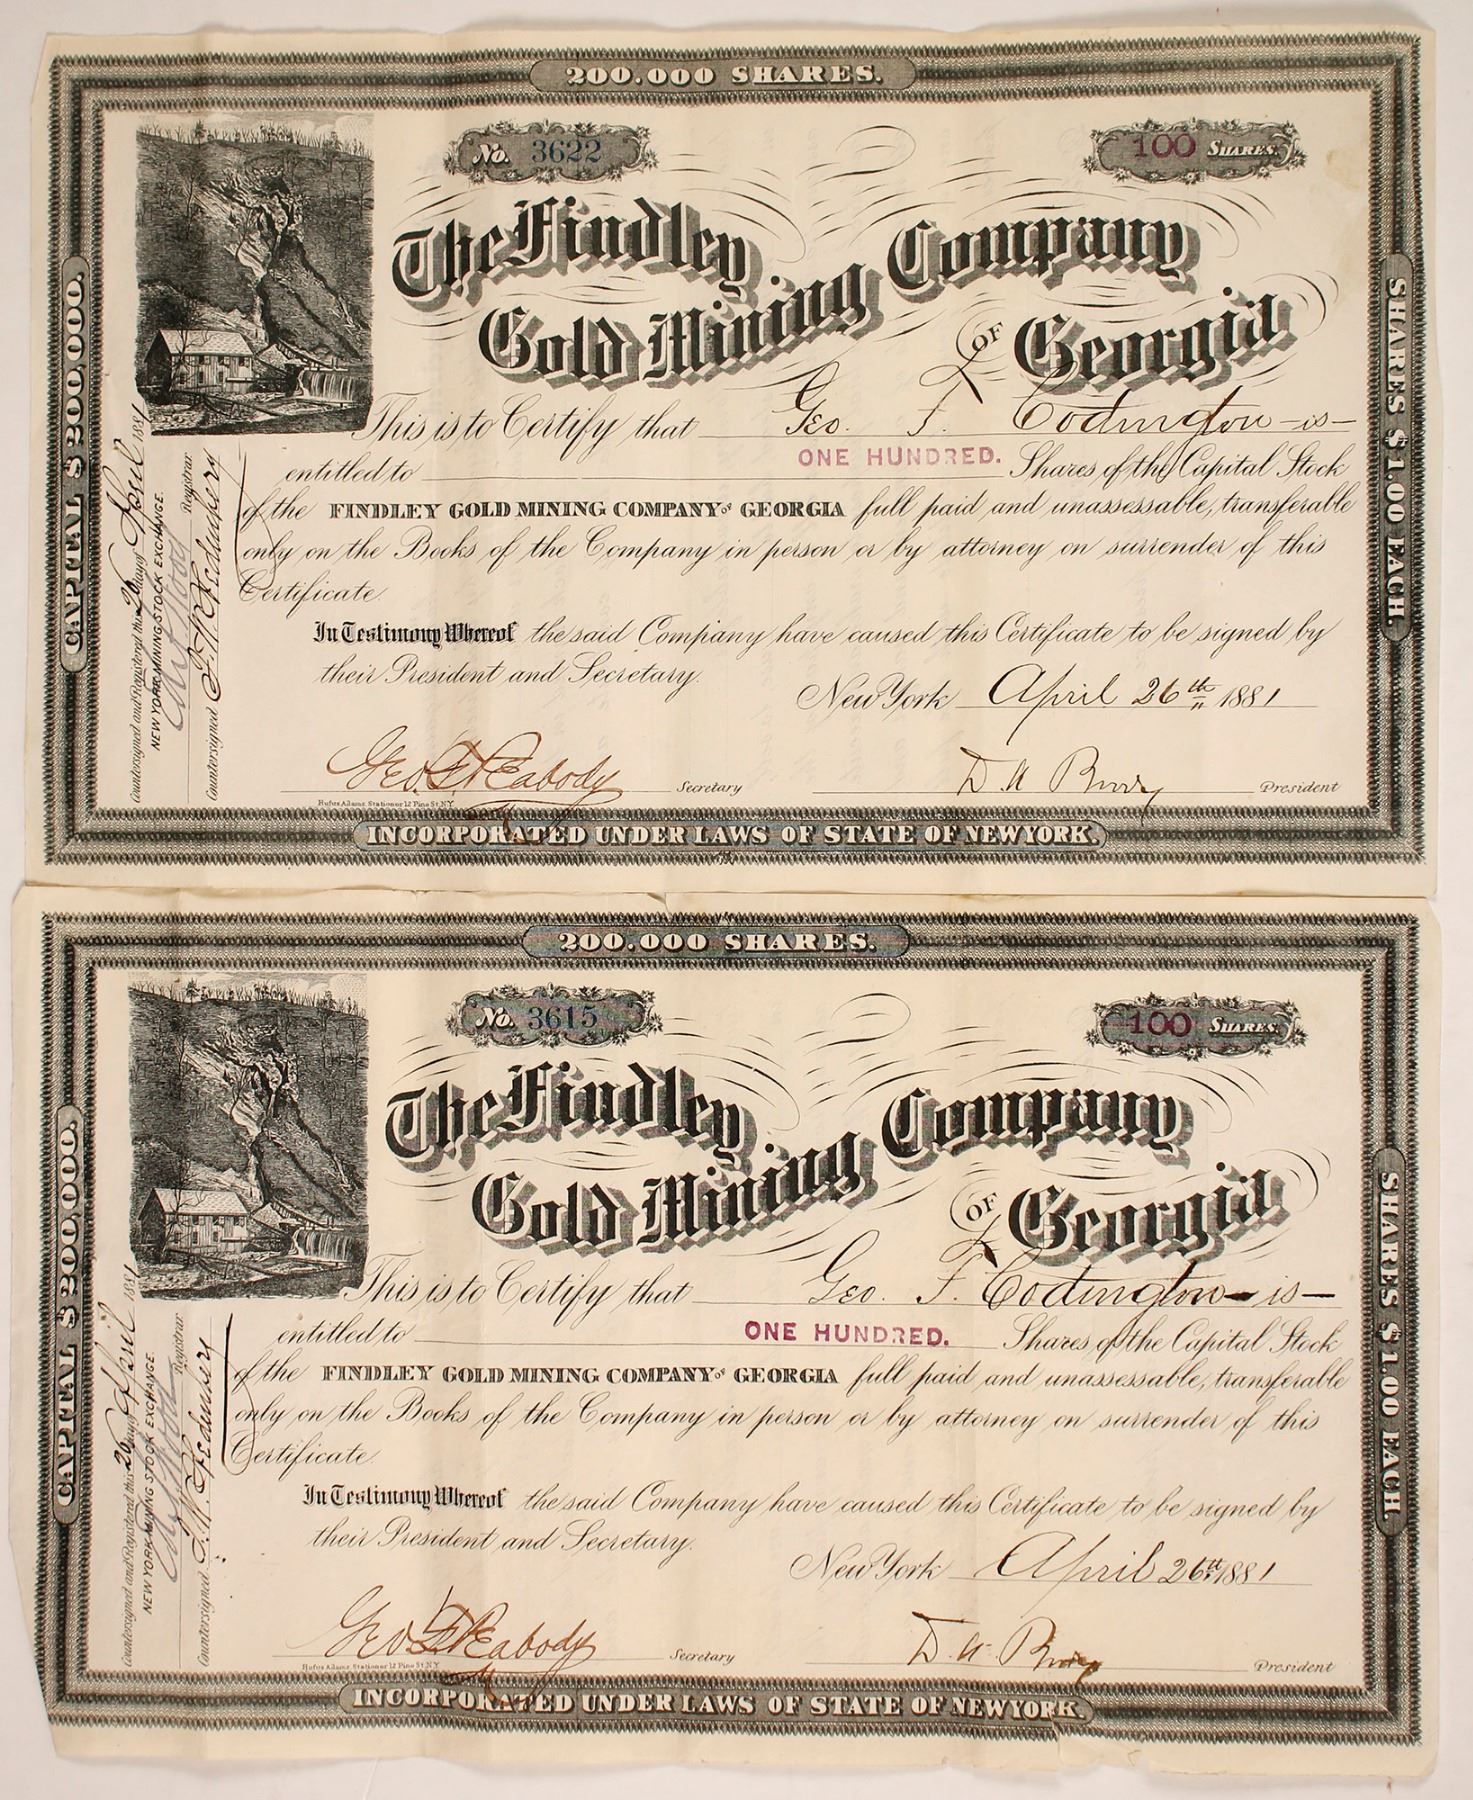 200.000 SHARES.
No. 3622
100 SHARES.
The Findley Company
Gold Mining OF Georgia
This is to Certify that Geo. F. Codington is
entitled to ONE HUNDRED. Shares of the Capital Stock
of the FINDLEY GOLD MINING COMPANY OF GEORGIA full paid and unassessable, transferable
only on the Books of the Company in person or by attorney on surrender of this
Certificate.
In Testimony Whereof the said Company have caused this Certificate to be signed by
their President and Secretary.
New York April 26th 1881
Geo. Peabody Secretary
President
Rufus Adams Stationer 12 Pine St. N.Y.
INCORPORATED UNDER LAWS OF STATE OF NEW YORK.
CAPITAL $200,000.
SHARES $1.00 EACH.
Countersigned and Registered this 26 day of April 1881
NEW YORK MINING STOCK EXCHANGE.
Registrar
Countersigned
200.000 SHARES.
No. 3615
100 SHARES.
The Findley Company
Gold Mining OF Georgia
This is to Certify that Geo. F. Codington is
entitled to ONE HUNDRED. Shares of the Capital Stock
of the FINDLEY GOLD MINING COMPANY OF GEORGIA full paid and unassessable, transferable
only on the Books of the Company in person or by attorney on surrender of this
Certificate.
In Testimony Whereof the said Company have caused this Certificate to be signed by
their President and Secretary.
New York April 26th 1881
Geo. Peabody Secretary
President
Rufus Adams Stationer 12 Pine St. N.Y.
INCORPORATED UNDER LAWS OF STATE OF NEW YORK.
CAPITAL $200,000.
SHARES $1.00 EACH.
Countersigned and Registered this 26 day of April 1881
NEW YORK MINING STOCK EXCHANGE.
Registrar
Countersigned